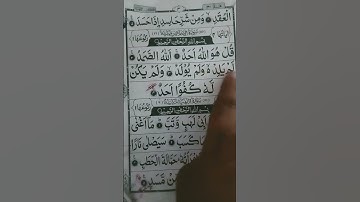 الْعُقَدِ ۝ وَمِنْ شَرِّ حَاسِدٍ اِذَا حَسَدَ ۝
بِسْمِ اللهِ الرَّحْمٰنِ الرَّحِيْمِ
قُلْ هُوَ اللهُ اَحَدٌ ۝ اَللهُ الصَّمَدُ ۝
لَمْ يَلِدْ ۙ وَلَمْ يُوْلَدْ ۝ وَلَمْ يَكُنْ
لَّهٗ كُفُوًا اَحَدٌ ۝
بِسْمِ اللهِ الرَّحْمٰنِ الرَّحِيْمِ
اَبِيْ لَهَبٍ وَّتَبَّ ۝ مَا اَغْنٰى
كَسَبَ ۝ سَيَصْلٰى نَارًا
حَمَّالَةَ الْحَطَبِ ۝
مِّنْ مَّسَدٍ ۝